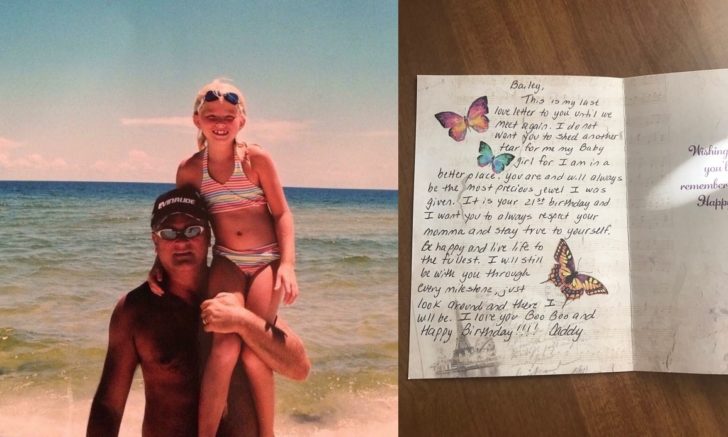 EVINRUDE
Bailey,
This is my last
love letter to you until we
meet again. I do not
want you to shed another
tear for me my Baby
girl for I am in a
better place. you are and will always
be the most precious jewel I was
given. It is your 21st birthday and
I want you to always respect your
momma and stay true to yourself.
Be happy and live life to
the fullest. I will still
be with you through
every milestone, just
look around and there I
will be. I love you Boo Boo and
Happy Birthday!!!! Daddy
Wishing
you
remember
Happ